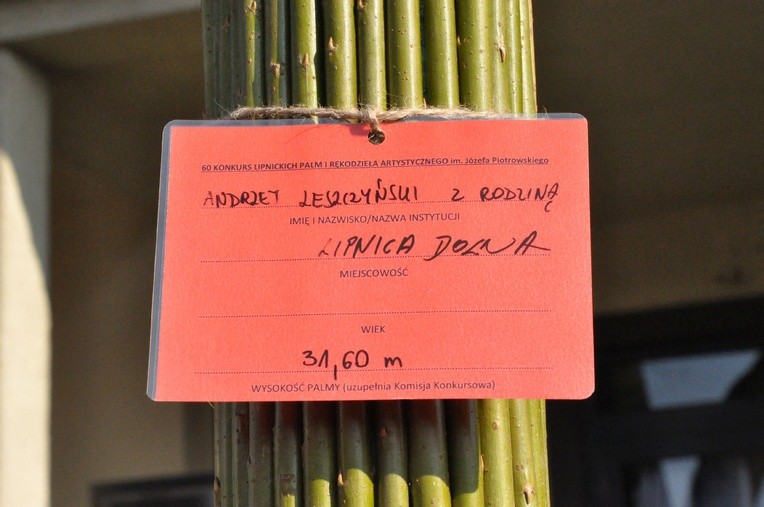 60 KONKURS LIPNICKICH PALM I RĘKODZIEŁA ARTYSTYCZNEGO im. Józefa Piotrowskiego
ANDRZEJ LESZCZYŃSKI Z RODZINĄ
IMIĘ I NAZWISKO/NAZWA INSTYTUCJI
LIPNICA DOLNA
MIEJSCOWOŚĆ
WIEK
31,60 m
WYSOKOŚĆ PALMY (uzupełnia Komisja Konkursowa)